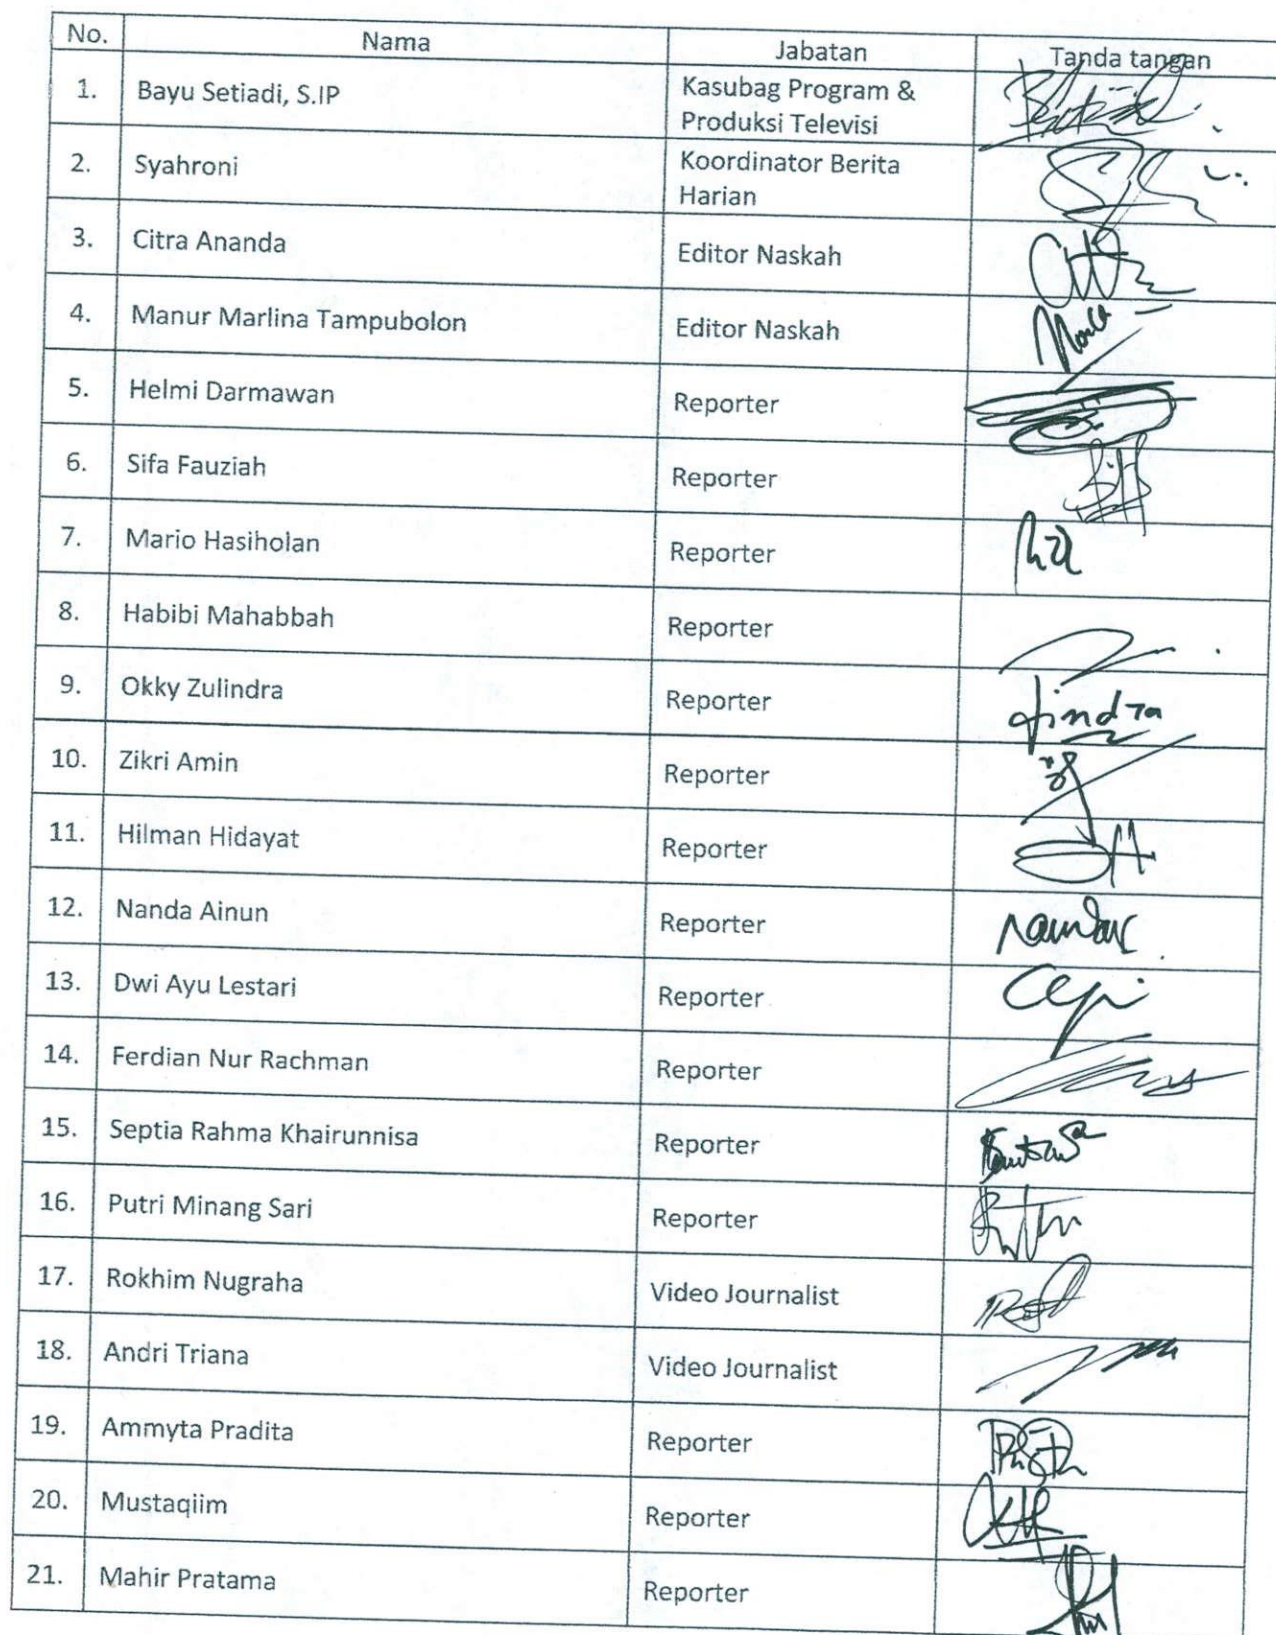 No. Nama Jabatan Tanda tangan
1. Bayu Setiadi, S.IP Kasubag Program &
Produksi Televisi
2. Syahroni Koordinator Berita
Harian
3. Citra Ananda Editor Naskah
4. Manur Marlina Tampubolon Editor Naskah
5. Helmi Darmawan Reporter
6. Sifa Fauziah Reporter
7. Mario Hasiholan Reporter
8. Habibi Mahabbah Reporter
9. Okky Zulindra Reporter
10. Zikri Amin Reporter
11. Hilman Hidayat Reporter
12. Nanda Ainun Reporter
13. Dwi Ayu Lestari Reporter
14. Ferdian Nur Rachman Reporter
15. Septia Rahma Khairunnisa Reporter
16. Putri Minang Sari Reporter
17. Rokhim Nugraha Video Journalist
18. Andri Triana Video Journalist
19. Ammyta Pradita Reporter
20. Mustaqiim Reporter
21. Mahir Pratama Reporter